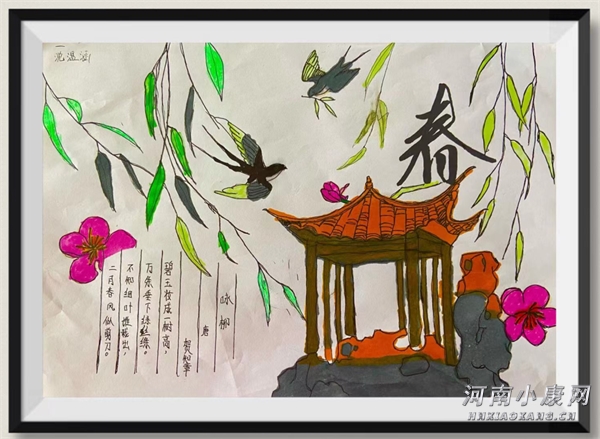 春
咏柳
唐
贺知章
碧玉妆成一树高，
万条垂下绿丝绦。
不知细叶谁裁出，
二月春风似剪刀。
河南小康网
HNXIAOKANG.CN